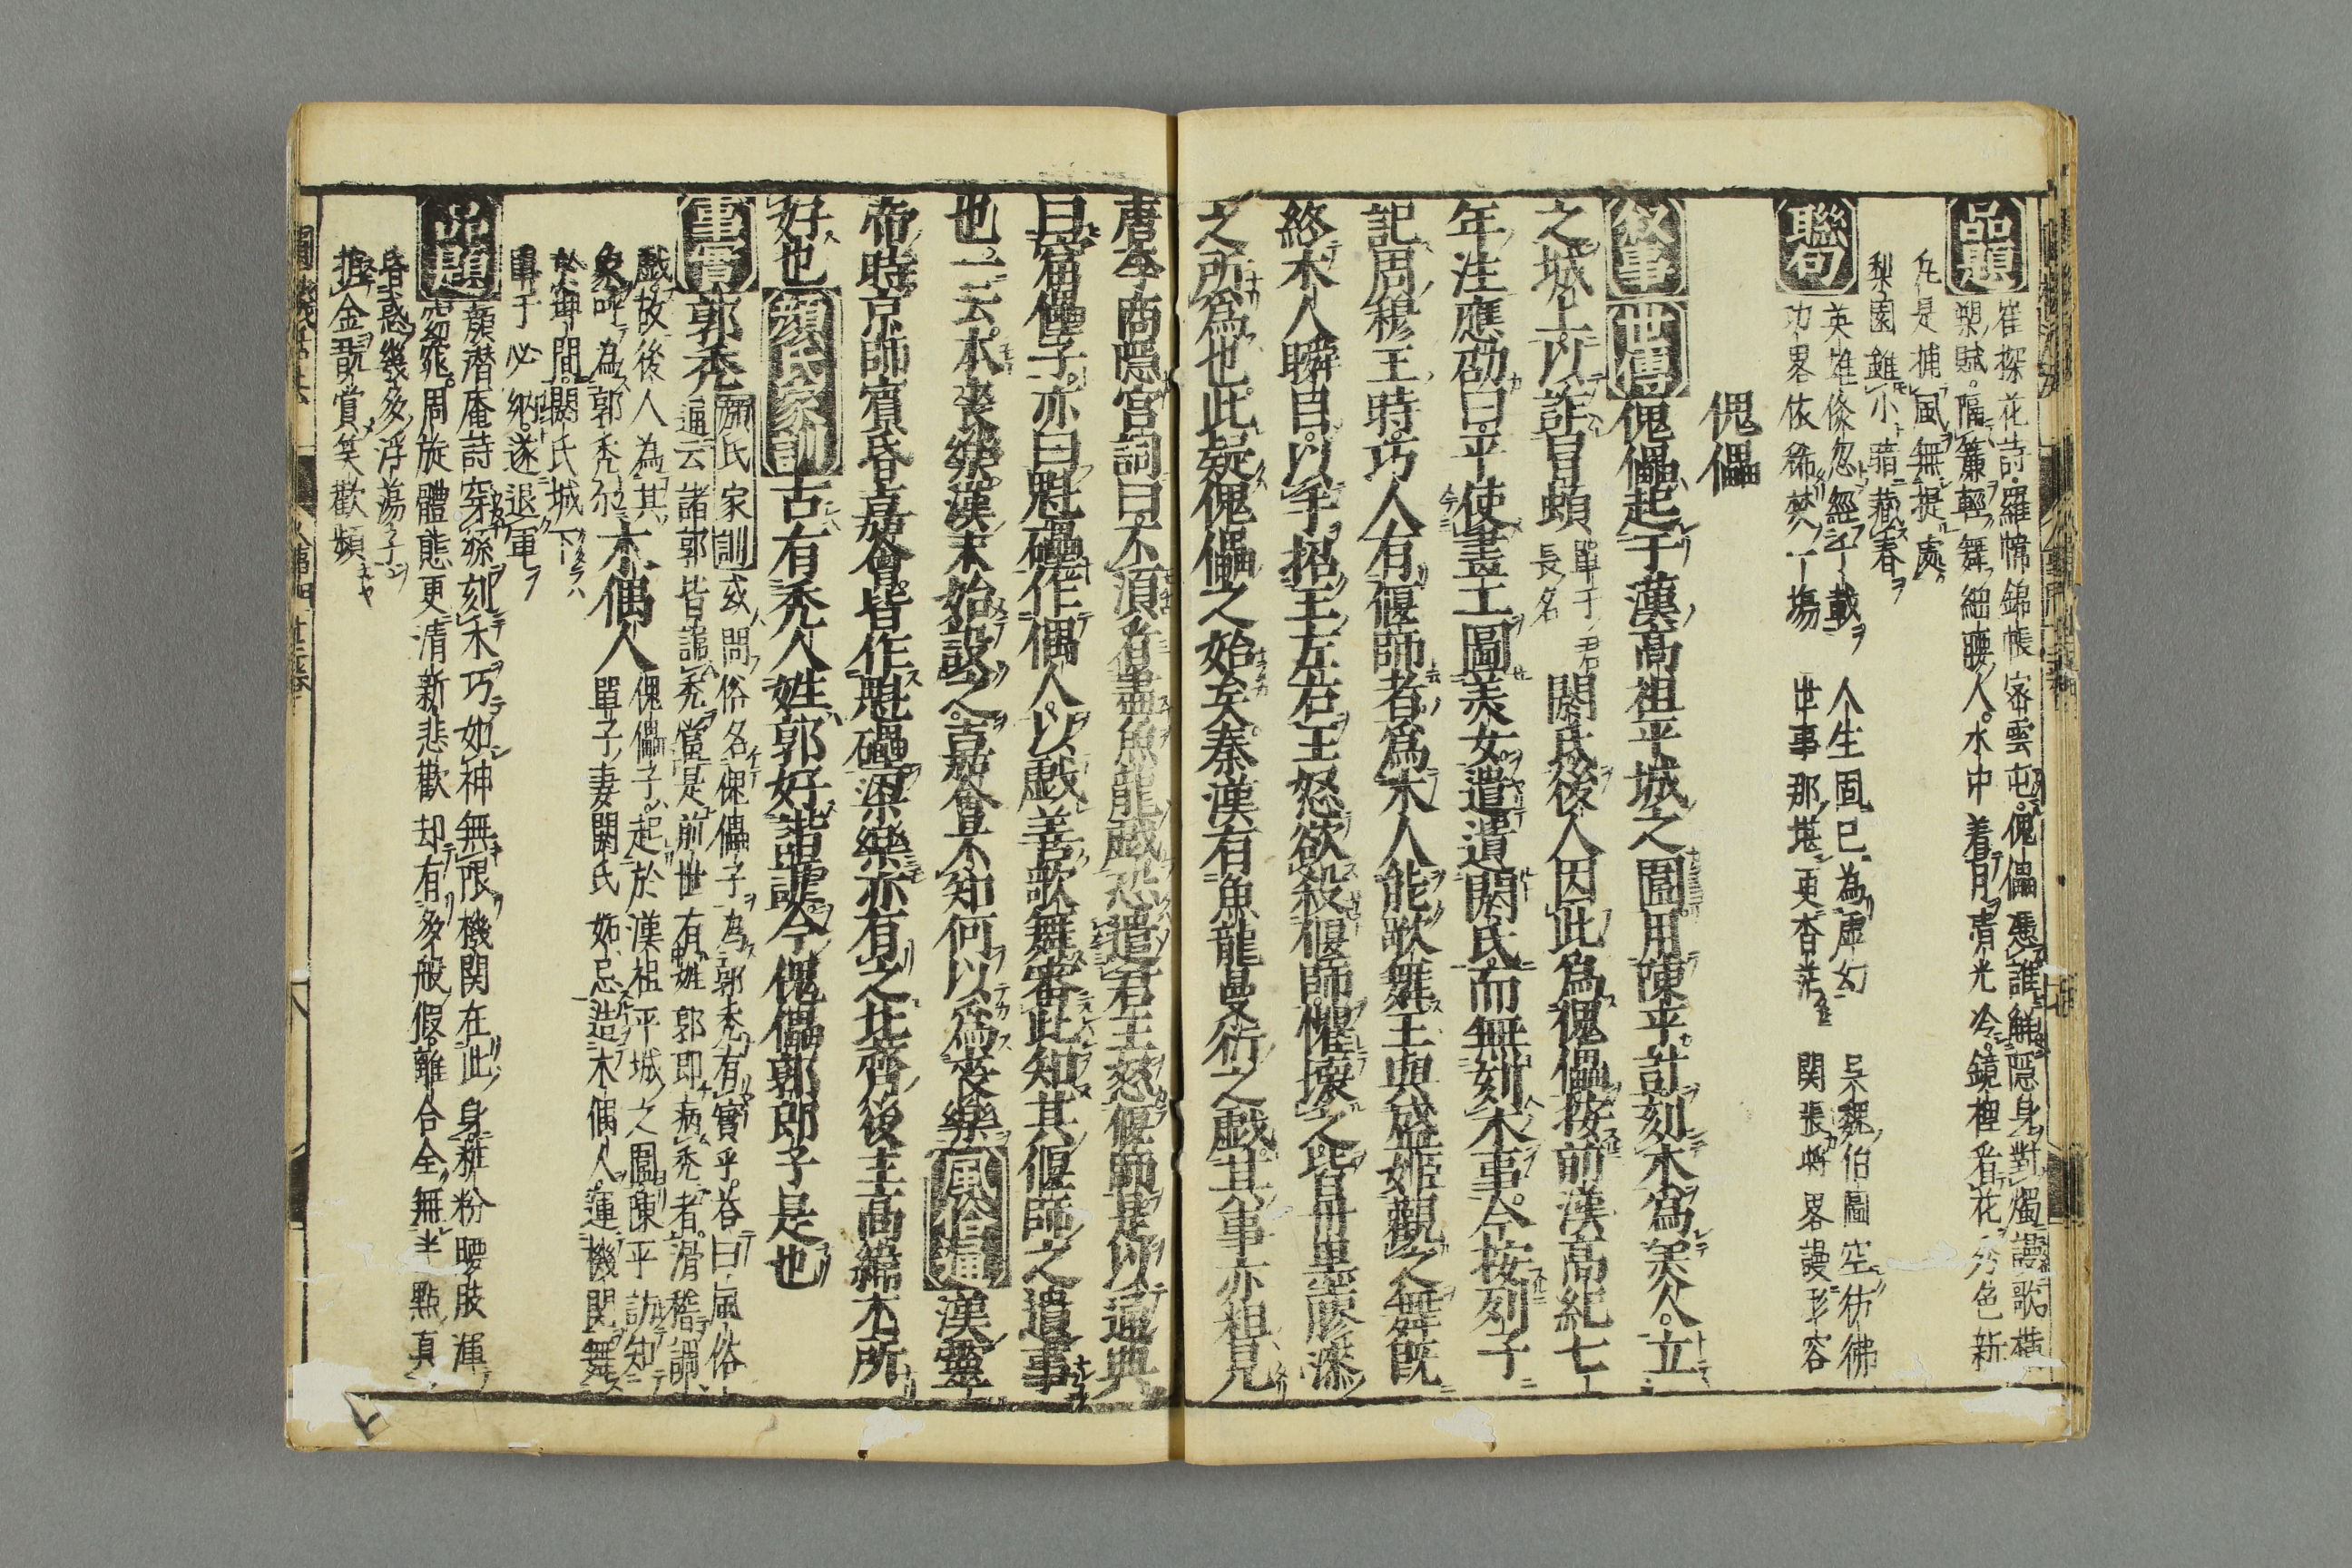 品題
崔探花詩羅幃錦帳密雲屯傀儡憑誰觧隱身對燭謾歌橫
槊賦隔簾輕舞細腰人水中着月清光冷鏡裡看花秀色新
凢是捕風無捉處
梨園雖小暗藏春
聯句
英雄倐忽經千載 人生固已為虛幻 吴魏伯圖空彷彿
功畧依稀焚一塲 世事那堪更杳茫 関張將畧謾形容
傀儡
叙事 世傳 傀儡起于漢高祖平城之圍用陳平計刻木爲羙人立
之城上以詐冒頓 單于君長名 閼氏後人因此爲傀儡按前漢高紀七
年注應劭曰平使畫工圖羙女遣遺閼氏而無刻木事今按列子
記周穆王時巧人有偃師者爲木人能歌舞王與盛姬觀之舞既
終木人瞬目以手招王左右王怒欲殺偃師懼壞之皆丹墨膠漆
之所爲也此疑傀儡之始矣秦漢有魚龍曼衍之戯其事亦祖見
唐李商隱宮詞曰不須看盡魚龍戯恐遣君王怒偃師是以通典
曰窟儡子亦曰魁礧作偶人以戯善歌舞審此知其偃師之遺事
也一云本喪樂漢末始設之嘉會不知何以爲喪樂 風俗通 漢靈
帝時京師賓昏嘉會皆作魁礧梁樂亦有之北齊後主高緯尤所
好也 顔氏家訓 古有禿人姓郭好諧謔今傀儡郭郎子是也
事實 郭禿 顔氏家訓 或問俗名傀儡子為郭禿有實乎荅曰風俗
通云諸郭皆諱禿當是前世有姓郭即病禿者滑稽調
戯故後人為其
象呼為郭禿尓 木偶人 傀儡子起於漢祖平城之圍陳平訪知
單于妻閼氏妬忌造木偶人運機関舞
於陴間閼氏城下
單于必納遂退軍
品題
顏潛庵詩穿綵刻木巧如神無限機関在此身雜粉腰肢渾
窈窕周旋體態更清新悲歡却有多般假離合全無半點真
昏惑幾多浮蕩子
搥金散賞笑歡頻